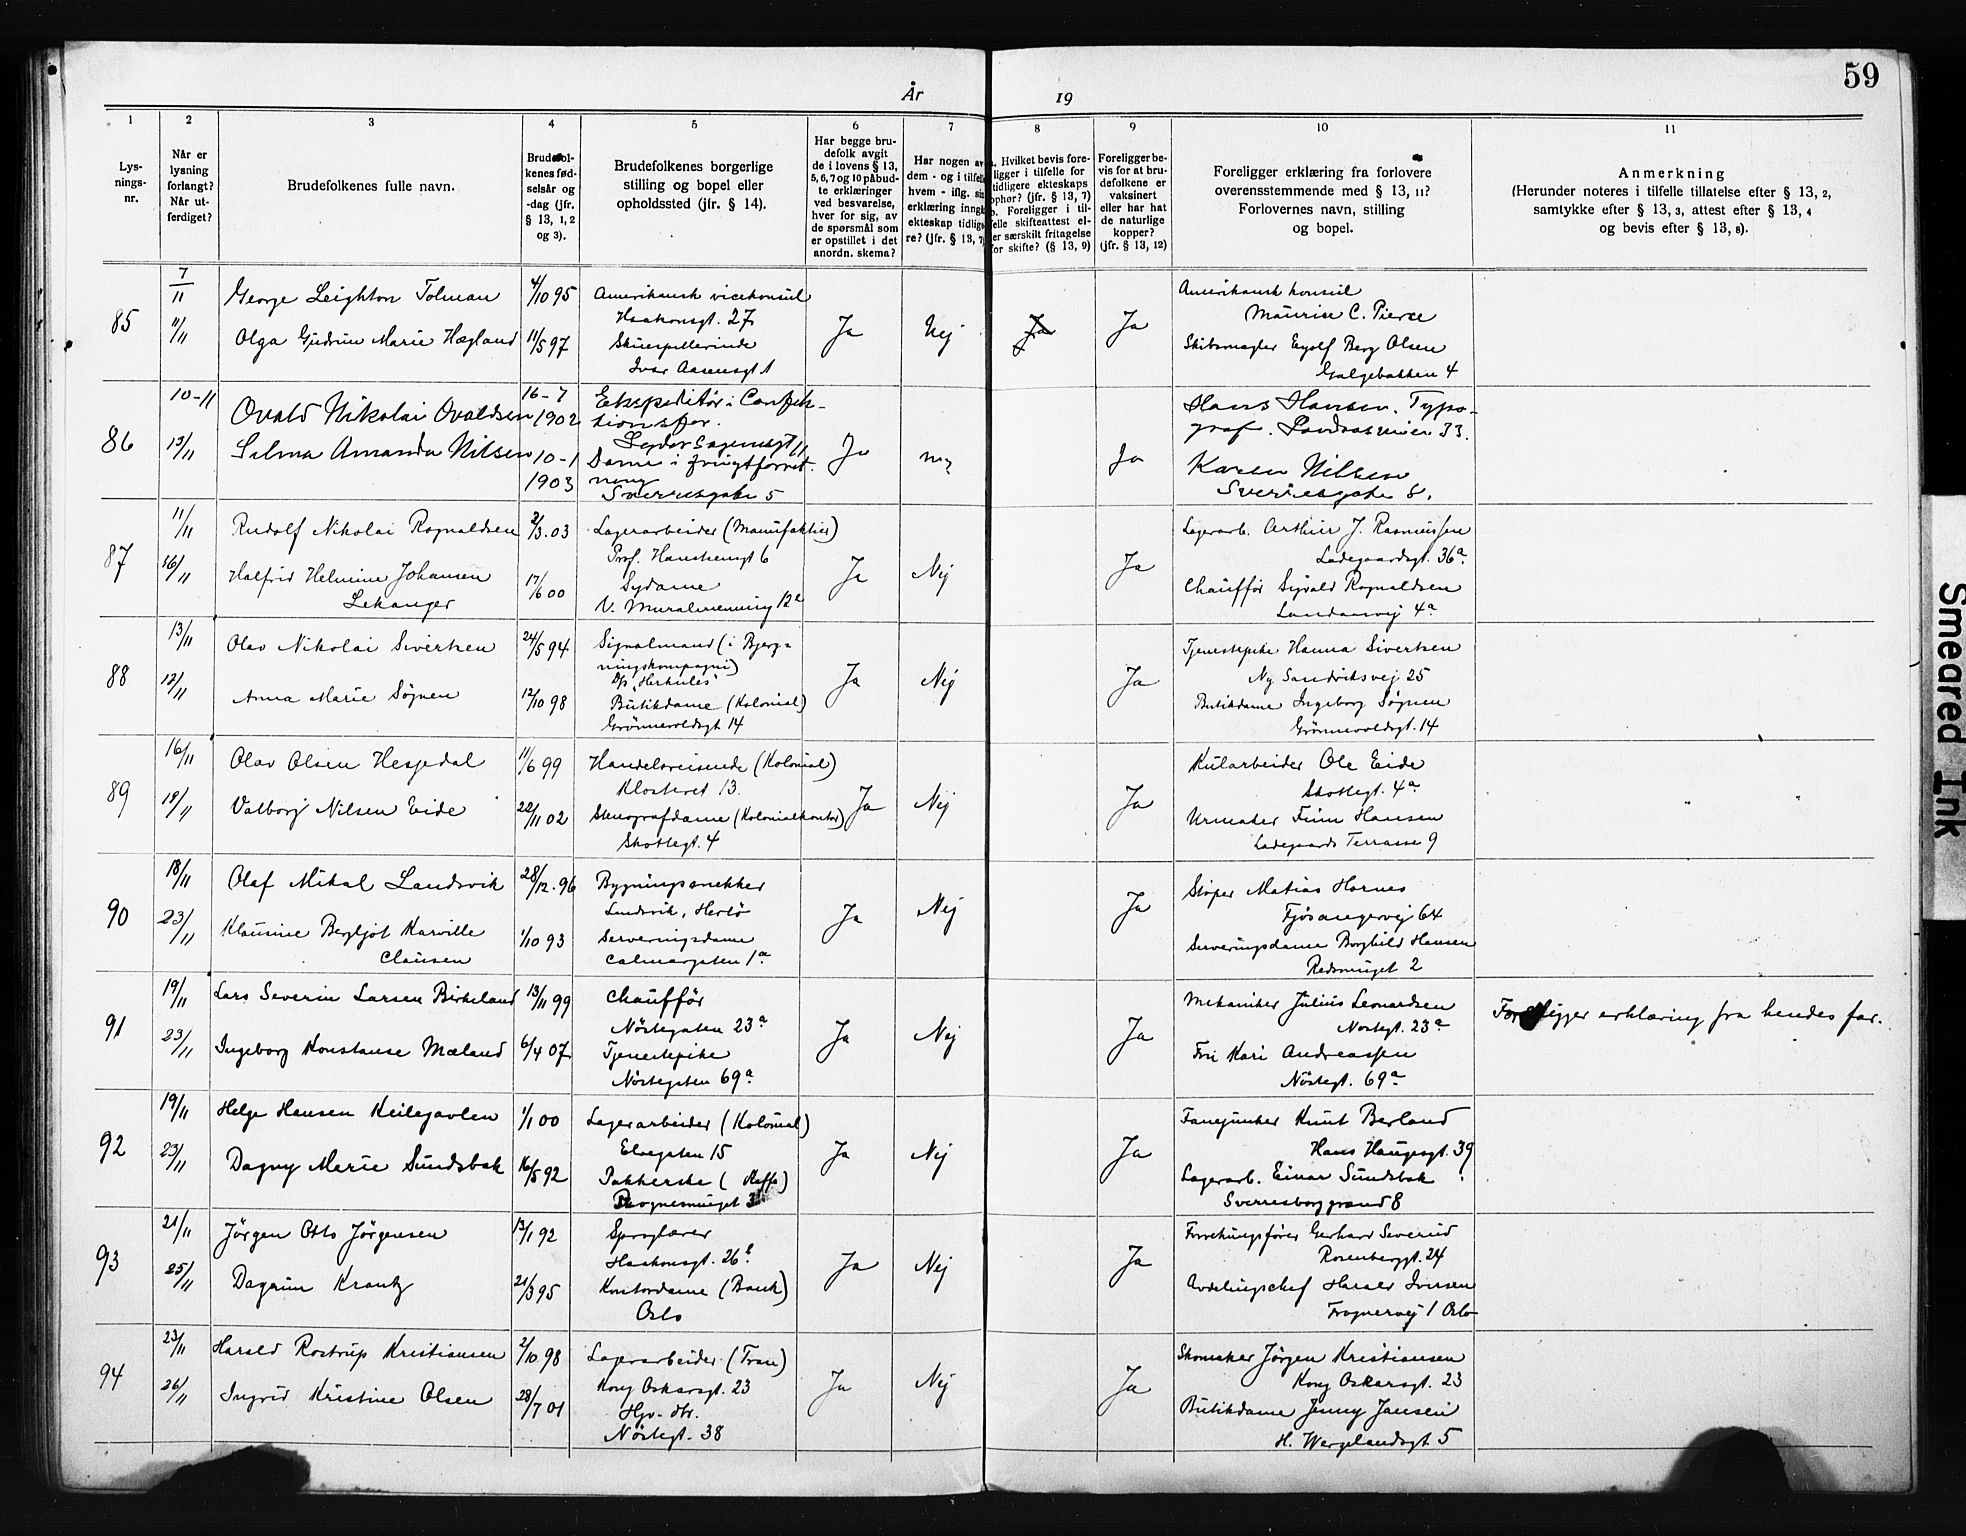 59
År 19
1 2 3 4 5 6 7 8 9 10 11
Lys-
nings-
nr.
Når er
lysning
forlangt?
Når ut-
ferdiget?
Brudefolkenes fulle navn.
Brudefol-
kenes fød-
selsår og
-dag (jfr.
§ 13, 1, 2
og 3).
Brudefolkenes borgerlige
stilling og bopel eller
opholdssted (jfr. § 14).
Har begge bru-
defolk avgit
de i lovens § 13,
5, 6, 7 og 10 påbud-
te erklæringer
ved besvarelse,
hver for sig, av
de spørsmål som
er opstillet i det
anordn. skema?
Har nogen av
dem - og i tilfelle
hvem - iflg. sin
erklæring inngå
ekteskap tidlige
re? (jfr. § 13, 7)
a. Hvilket bevis fore-
ligger i tilfelle for
tidligere ekteskaps
ophør? (jfr. § 13, 7)
b. Foreligger i til-
felle skifteattest el-
er særskilt fritagelse
for skifte? (§ 13, 9)
Foreligger be-
vis for at bru-
defolkene er
vaksinert
eller har hat
de naturlige
kopper?
(jfr. § 13, 12)
Foreligger erklæring fra forlovere
overensstemmende med § 13, 11?
Forlovernes navn, stilling
og bopel.
Anmerkning
(Herunder noteres i tilfelle tillatelse efter § 13, 2,
samtykke efter § 13, 3, attest efter § 13, 4
og bevis efter § 13, 8).
85
7/11 George Leighton Tolman 4/10 95 Amerikansk vicekonsul
Haakonsgt. 27
11/11 Olga Gudrun Marie Hægland 11/5 97 Skuespillerinde
Ivar Aasensgt 1
Ja Nej Ja Ja
Amerikansk konsul
Maurice C. Pierce
Skibsmegler Eyolf Berg Olsen
Galgebakken 4
86
10-11 Ovald Nikolai Ovaldsen 16-7 1902 Ekspeditør i Confek-
tionsfor.
Lyder Sagensgt 11
13/11 Selma Amanda Nilsen 10-1 1903 Dame i frugtforret-
ning
Sverresgate 5
Ja nej Ja
Hans Hansen. Typo-
graf. Landaasveien 33.
Karen Nilsen
Sverresgate 8.
87
11/11 Rudolf Nikolai Rognaldsen 2/3.03 Lagerarbeider (Manufaktur)
Prof. Hansteensgt 6
16/11 Halfrid Helmine Johansen
Lekanger 17/6 00 Sydame
V. Muralmenning 12
Ja Nej Ja
Lagerarb. Arthur J. Rasmussen
Ladegaardsgt. 36a
Chauffør Sigvald Rognaldsen
Landaasvej 4a
88
13/11 Olav Nikolai Sivertsen 24/5 94 Signalmand (i Bjerg-
ningskompagni)
D/s "Herkules"
12/11 Anna Marie Søgnen 12/10 98 Butikdame (Kolonial)
Grønnevoldsgt 14
Ja Nej Ja
Tjenestepike Hanna Sivertsen
Ny Sandviksvej 25
Butikdame Ingeborg Søgnen
Grønnevoldsgt. 14
89
16/11 Olav Olsen Hesjedal 11/6 99 Handelsreisende (Kolonial)
Klosteret 13.
18/11 Valborg Nilsen Eide 22/11 02 Stenografdame (Kolonialkontor)
Skottegt. 4
Ja Nej Ja
Kularbeider Ole Eide
Skottegt. 4a
Urmaker Finn Hansen
Ladegaards Terrasse 9
90
18/11 Olaf Mikal Landsvik 28/12.96 Bygningssnekker
Landsvik, Herlø
23/11 Klausine Bergljot Karville
Clausen 1/10 93 Serveringsdame
Calmargaten 1a
Ja Nej Ja
Støper Matias Hornes
Fjøsangervej 64
Serveringsdame Borghild Hansen
2
91
19/11 Lars Severin Larsen Birkeland 13/11 99 Chauffør
Nøstegaten 23a
23/11 Ingeborg Konstanse Mæland 6/4 07 Tjenestepike
Nøstegaten 69a
Ja Nej Ja
Mekaniker Julius Leonardsen
Nøstegt. 23a
Fru Kari Andreassen
Nøstegt. 69a
Foreligger erklæring fra hendes far.
92
19/11 Helge Hansen Keilegavlen 1/1 00 Lagerarbeider (Kolonial)
Elvegaten 15
23/11 Dagny Marie Sundsbak 16/5 92 Pakkerske (Kaffe)
Ja Nej Ja
Fanejunker Knut Berland
Hans Haugesgt. 39
Lagerarb. Einar Sundsbak
Sverresborggrand 8
93
21/11 Jørgen Otto Jørgensen 13/1 92 Sproglærer
Haakonsgt. 26
25/11 Dagrun Krantz 21/3 95 Kontordame (Bank)
Oslo
Ja Nej Ja
Forretningsfører Gerhard Severud
Rosenberggt. 24
Avdelingschef Harald Iversen
Frognervej 1 Oslo
94
23/11 Harald Rostrup Kristiansen 2/10 98 Lagerarbeider (Tran)
Kong Oskarsgt. 23
26/11 Ingrid Kristine Olsen 28/7 01 Hjv. dtr.
Nøstegt. 38
Ja Nej Ja
Skomaker Jørgen Kristiansen
Kong Oskarsgt. 23
Butikdame Jenny Jansen
H. Wergelandsgt 5
Smeared Ink